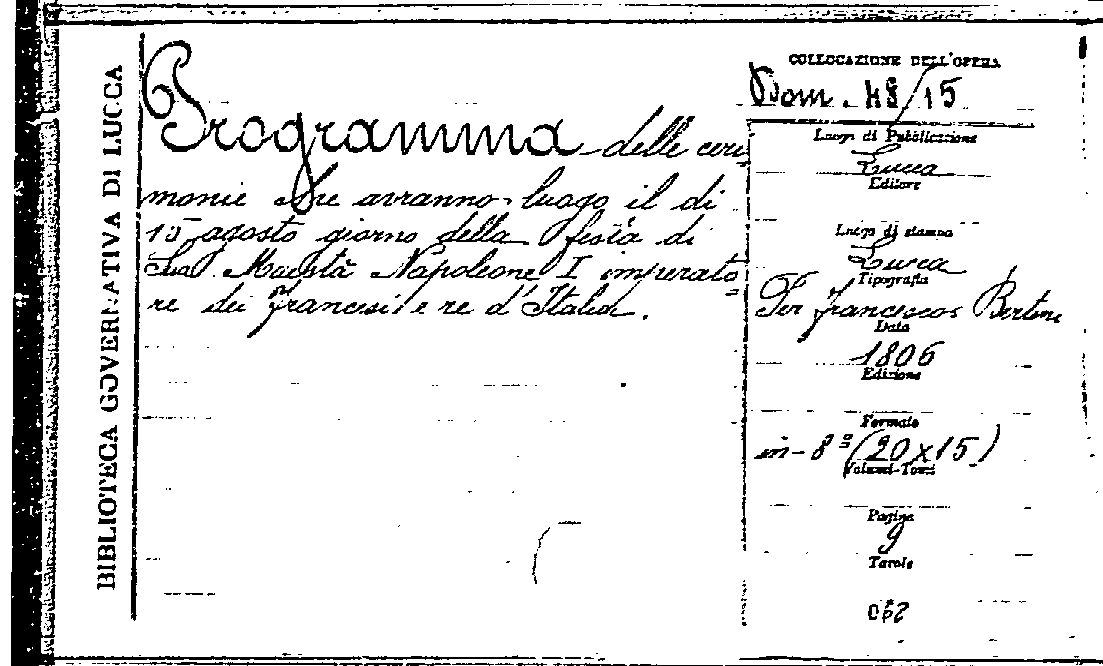 BIBLIOTECA GOVERNATIVA DI LUCCA
Programma delle ceri
monie che avranno luogo il di
15 agosto giorno della festa di
Sua Maestà Napoleone I imperato=
re dei francesi e re d'Italia.
COLLOCAZIONE DELL'OPERA
Dom. 48/15
Luogo di Pubblicazione
Lucca
Editore
Luogo di stampa
Lucca
Tipografia
Per francesco Bertini
Data
1806
Edizione
Formato
in-8º (20x15)
Volumi-Tomi
Pagine
9
Tavole